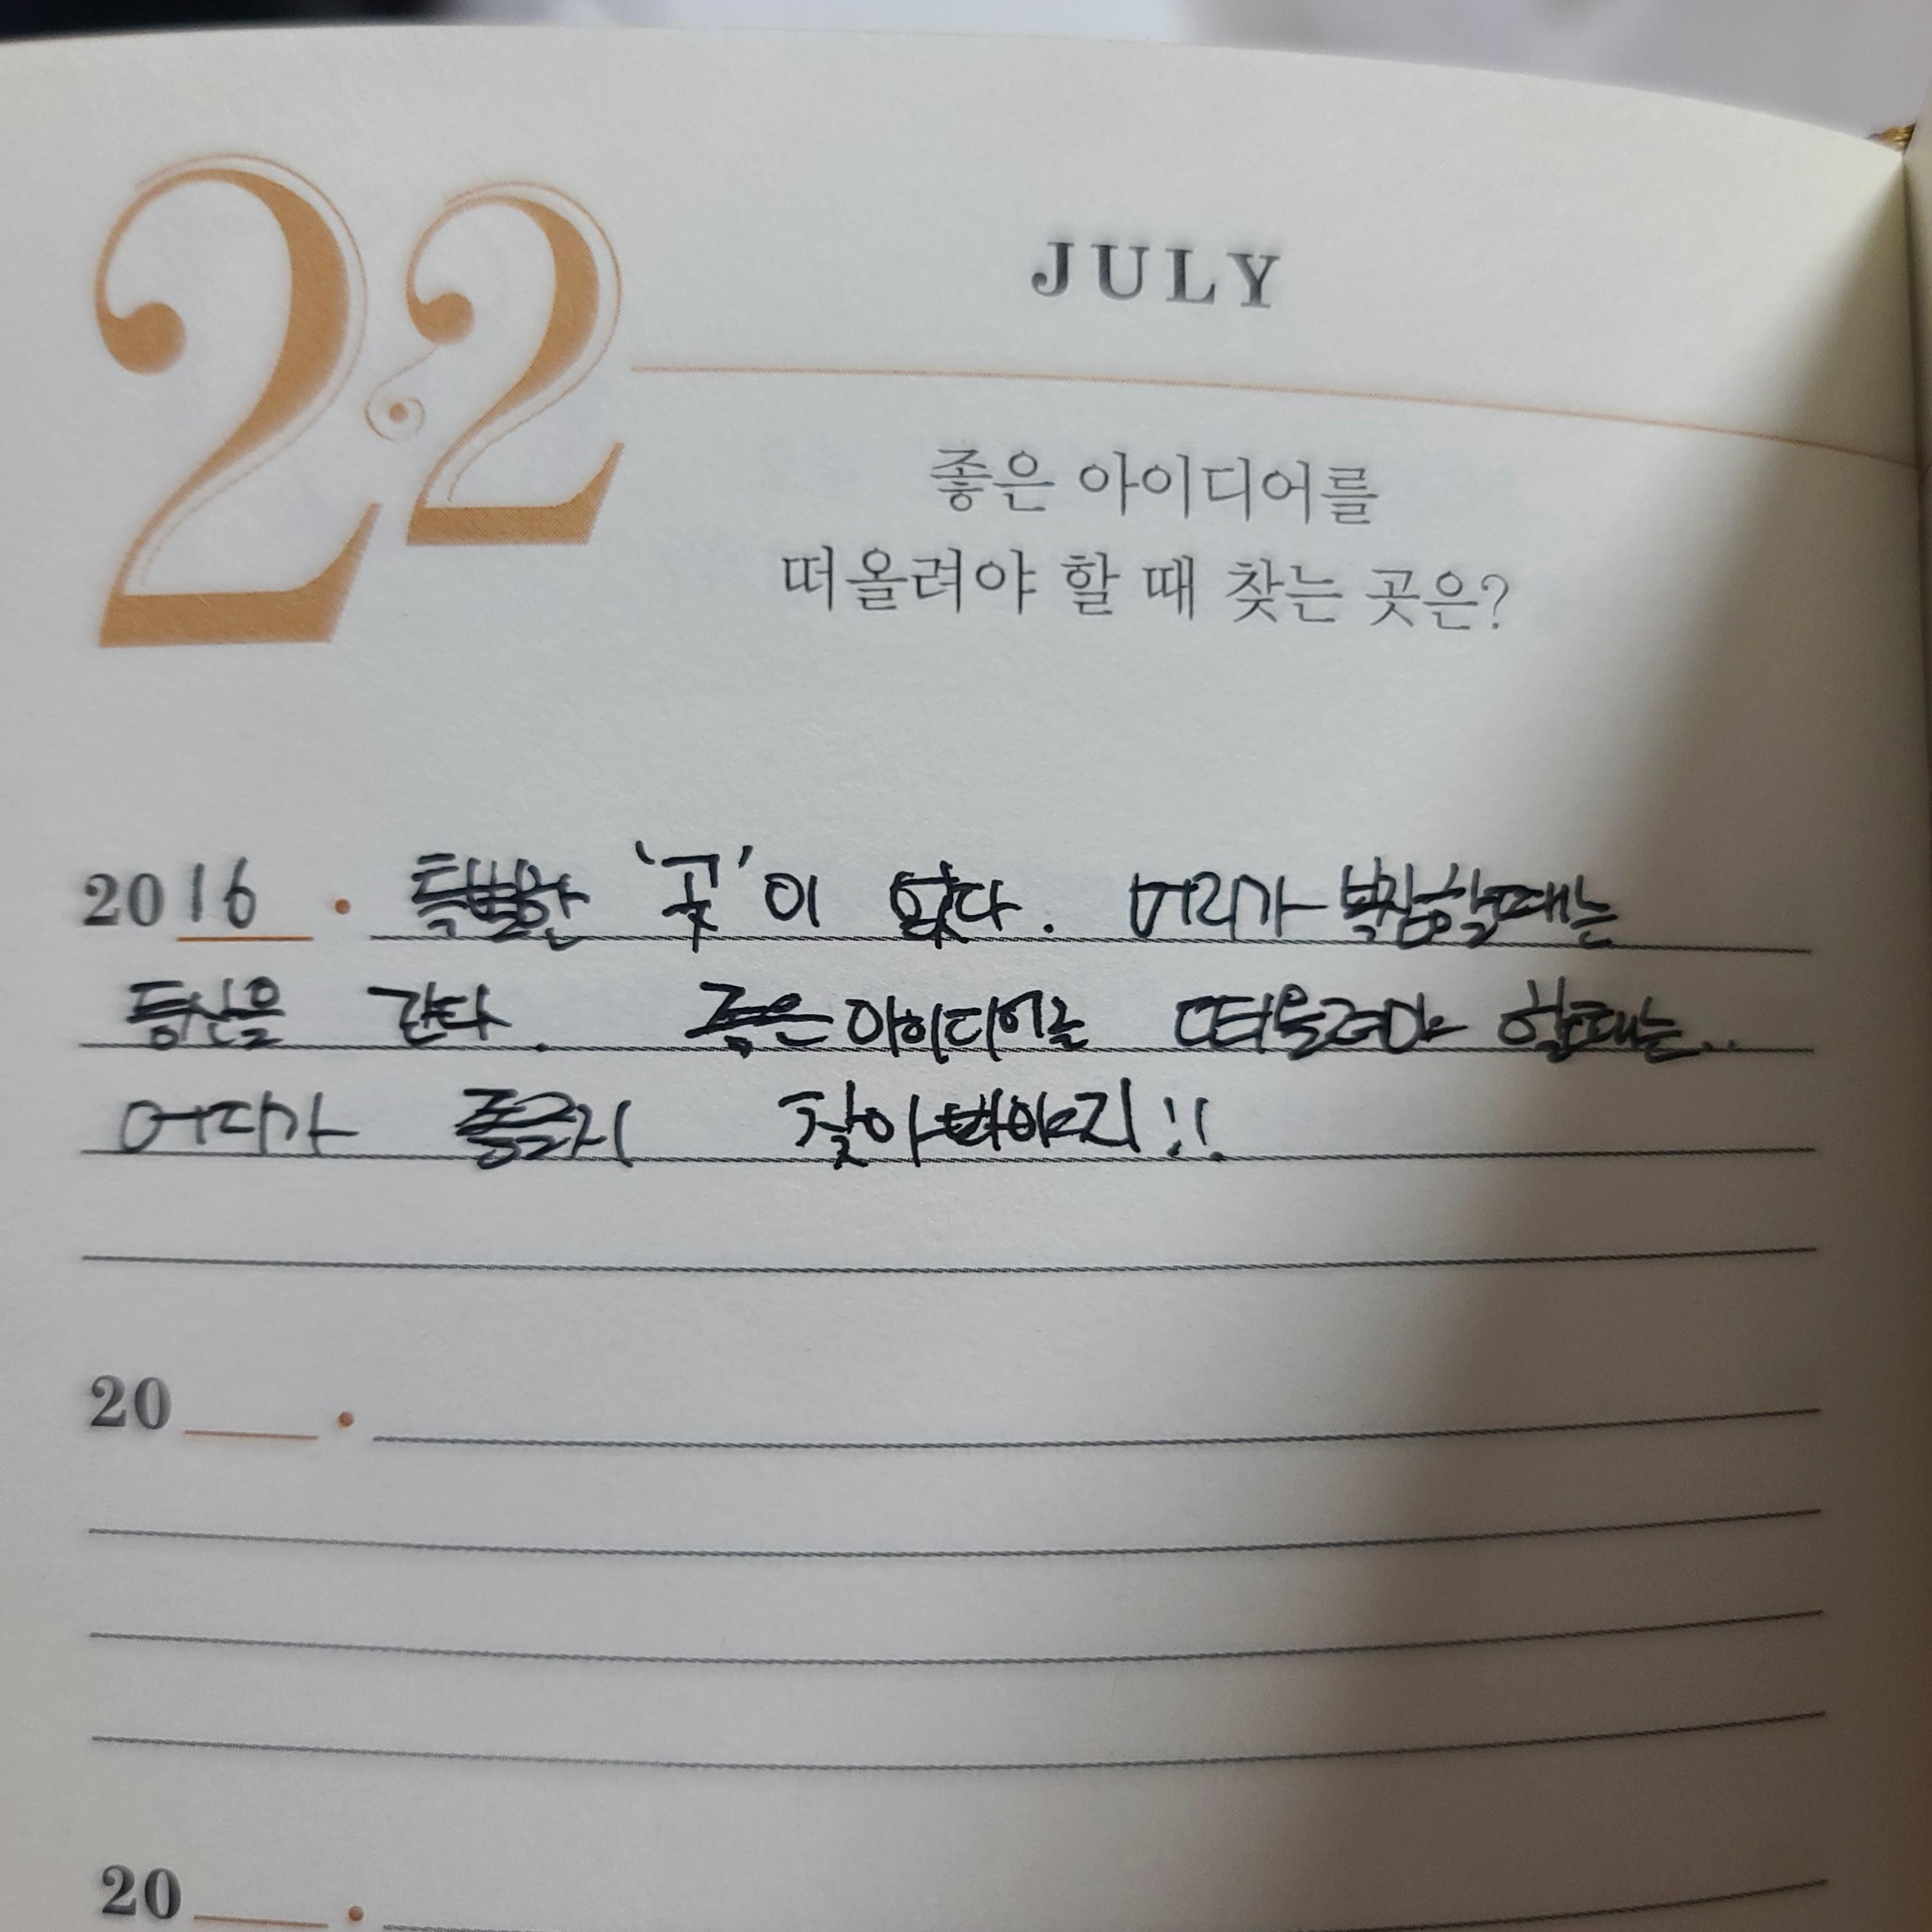 22
JULY
좋은 아이디어를
떠올려야 할 때 찾는 곳은?
2016 · 특별한 '곳'이 없다. 머리가 복잡할때는
등산을 간다. 좋은 아이디어를 떠올려야 할때는..
어디가 좋을지 찾아봐야지!!
20 ·
20 ·